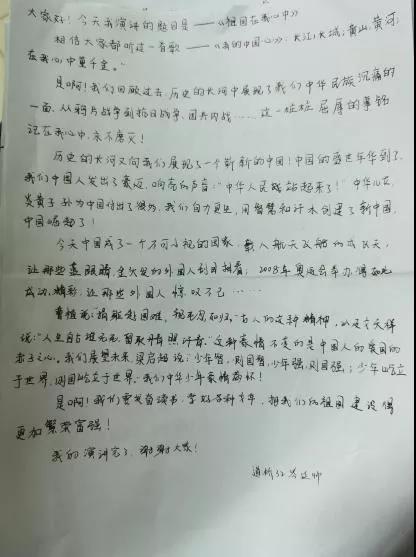 大家好！今天我演讲的题目是——《祖国在我心中》
相信大家都听过一首歌——《我的中国心》：长江，长城，黄山，黄河，
在我心中重千金。”
是啊！我们回顾过去，历史的长河中展现了我们中华民族沉痛的
一面，从鸦片战争到抗日战争，国共内战……这一桩桩屈辱的事铭
记在我心中，永不磨灭！
历史的长河又向我们展现了一个崭新的中国！中国的盛世年华到了，
我们中国人发出了豪迈，响亮的声音：“中华人民战站起来了！”中华儿女，
炎黄子孙为中国付出了很多，我们自力更生，用智慧和汗水创建了新中国，
中国崛起了！
今天中国成了一个不可小视的国家，载人航天飞船的成功升天，
让那些蓝眼睛，金头发的外国人刮目相看；2008年奥运会举办，得如此
成功，精彩，让那些外国人惊叹不已……
曹植说：捐躯赴国难，视死忽如归。古人的这种精神，以及文天祥
说：“人生自古谁无死，留取丹心照汗青。”这种豪情不变的是中国人的爱国的
赤子之心。我们展望未来，梁启超说：少年智，则国智，少年强，则国强；少年屹立
于世界，则国屹立于世界。我们中华少年豪情满怀！
是啊！我们要发奋读书，学好各种本领，把我们的祖国建设得
更加繁荣富强！
我的演讲完了，谢谢大家！
道桥